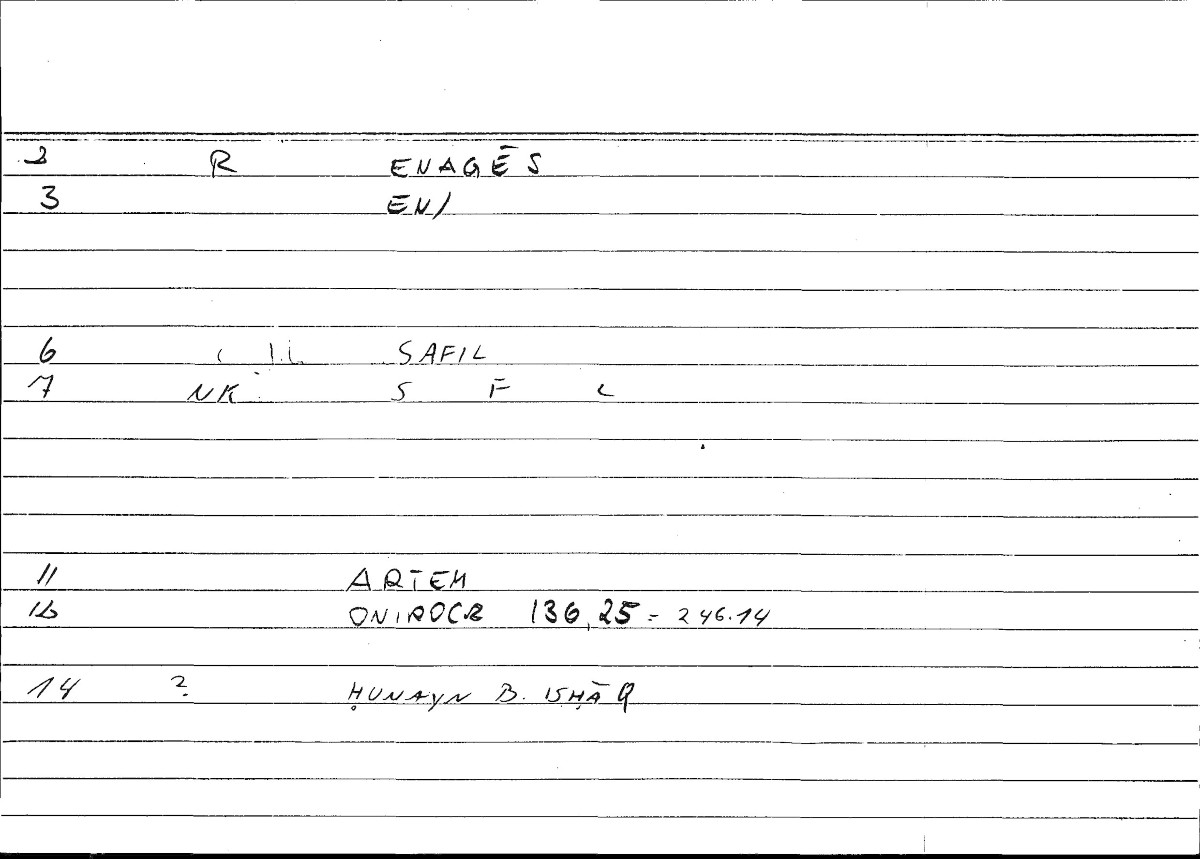 2 R ENAGĒS
3 EN/
6 SAFIL
7 NK S F L
11 ARTEM
12 ONIROCR 136,25 = 246.14
14 ? ḤUNAYN B. ISḤĀQ